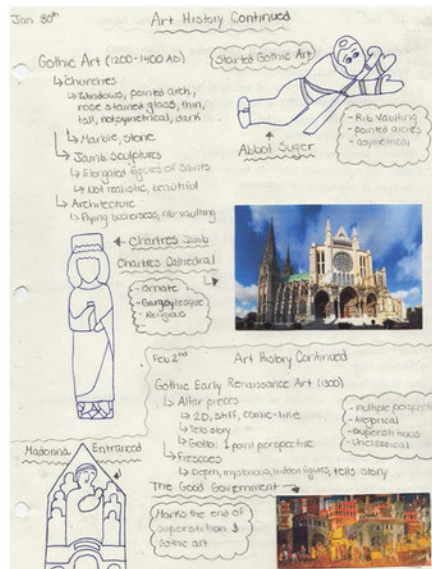 Jan 30th
Art History Continued
Gothic Art (1200-1400 AD)
↳ Churches
↳ Windows, pointed arch,
rose stained glass, thin,
tall, not symetrical, dark
↳ Marble, stone
↳ Jamb Sculptures
↳ Elongated figures of Saints
↳ Not realistic, beautiful
↳ Architecture
↳ Flying , rib vaulting
Started Gothic Art
Abbot Suger
- Rib Vaulting
- pointed arches
- asymetrical
Chartres Jamb
Chartres Cathedral
- Ornate
- 
- Religious
Feb 2nd
Art History Continued
Gothic Early Renaissance Art (1300)
↳ Altar pieces
↳ 2D, stiff, comic-line
↳ Tells story
↳ Giotto: 1 point perspective
↳ Frescoes
↳ Depth, mysterious, hidden figures, tells story
- multiple
- Atypical
- Superstitious
- Unclassical
Madonna Entranced
The Good Government
Marks the end of
Superstition &
Gothic art